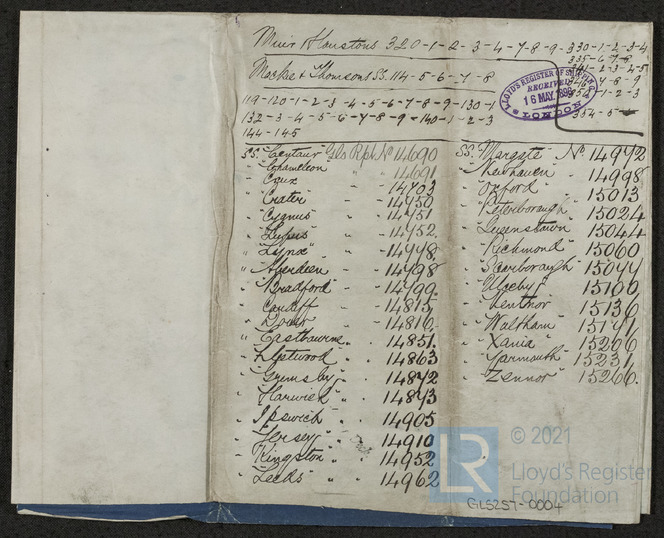 Muir & Houstons 320-1-2-3-4-7-8-9-330-1-2-3-4
335-6-7-8
Mackie & Thomsons SS. 114-5-6-7-8
119-120-1-2-3-4-5-6-7-8-9-130-1
132-3-4-5-6-7-8-9-140-1-2-3
354-5-
144-145
LLOYD'S REGISTER OF SHIPPING
RECEIVED
16 MAY 1896
LONDON
SS. Centaur Gls Rpt No 14690
" Chameleon " 14691
" Crux - 14703
" Crater - - 14750
" Cygnus - - 14751
" Lupus - - 14752
" Lynx - - 14778
" Aberdeen - - 14798
" Bradford - - 14799
" Cardiff - - 14815
" Dover - - 14816
" Eastbourne - 14851
" Fleetwood " . 14863
" Grimsby " . 14872
" Harwich " . 14873
" Ipswich " . 14905
" Jersey " 14910
" Kingston " 14952
" Leeds " " 14962
SS. Margate No. 14972
" Newhaven - 14998
" Oxford - 15013
" Peterborough " 15024
" Queenstown " 15044
" Richmond " 15060
" Scarborough " 15077
" Ulceby " 15100
" Ventnor " 15136
" Waltham " 15171
" Xania " 15206
" Yarmouth " 15231
" Zennor " 15266
© 2021
LR
Lloyd's Register
Foundation
GLS257-0004